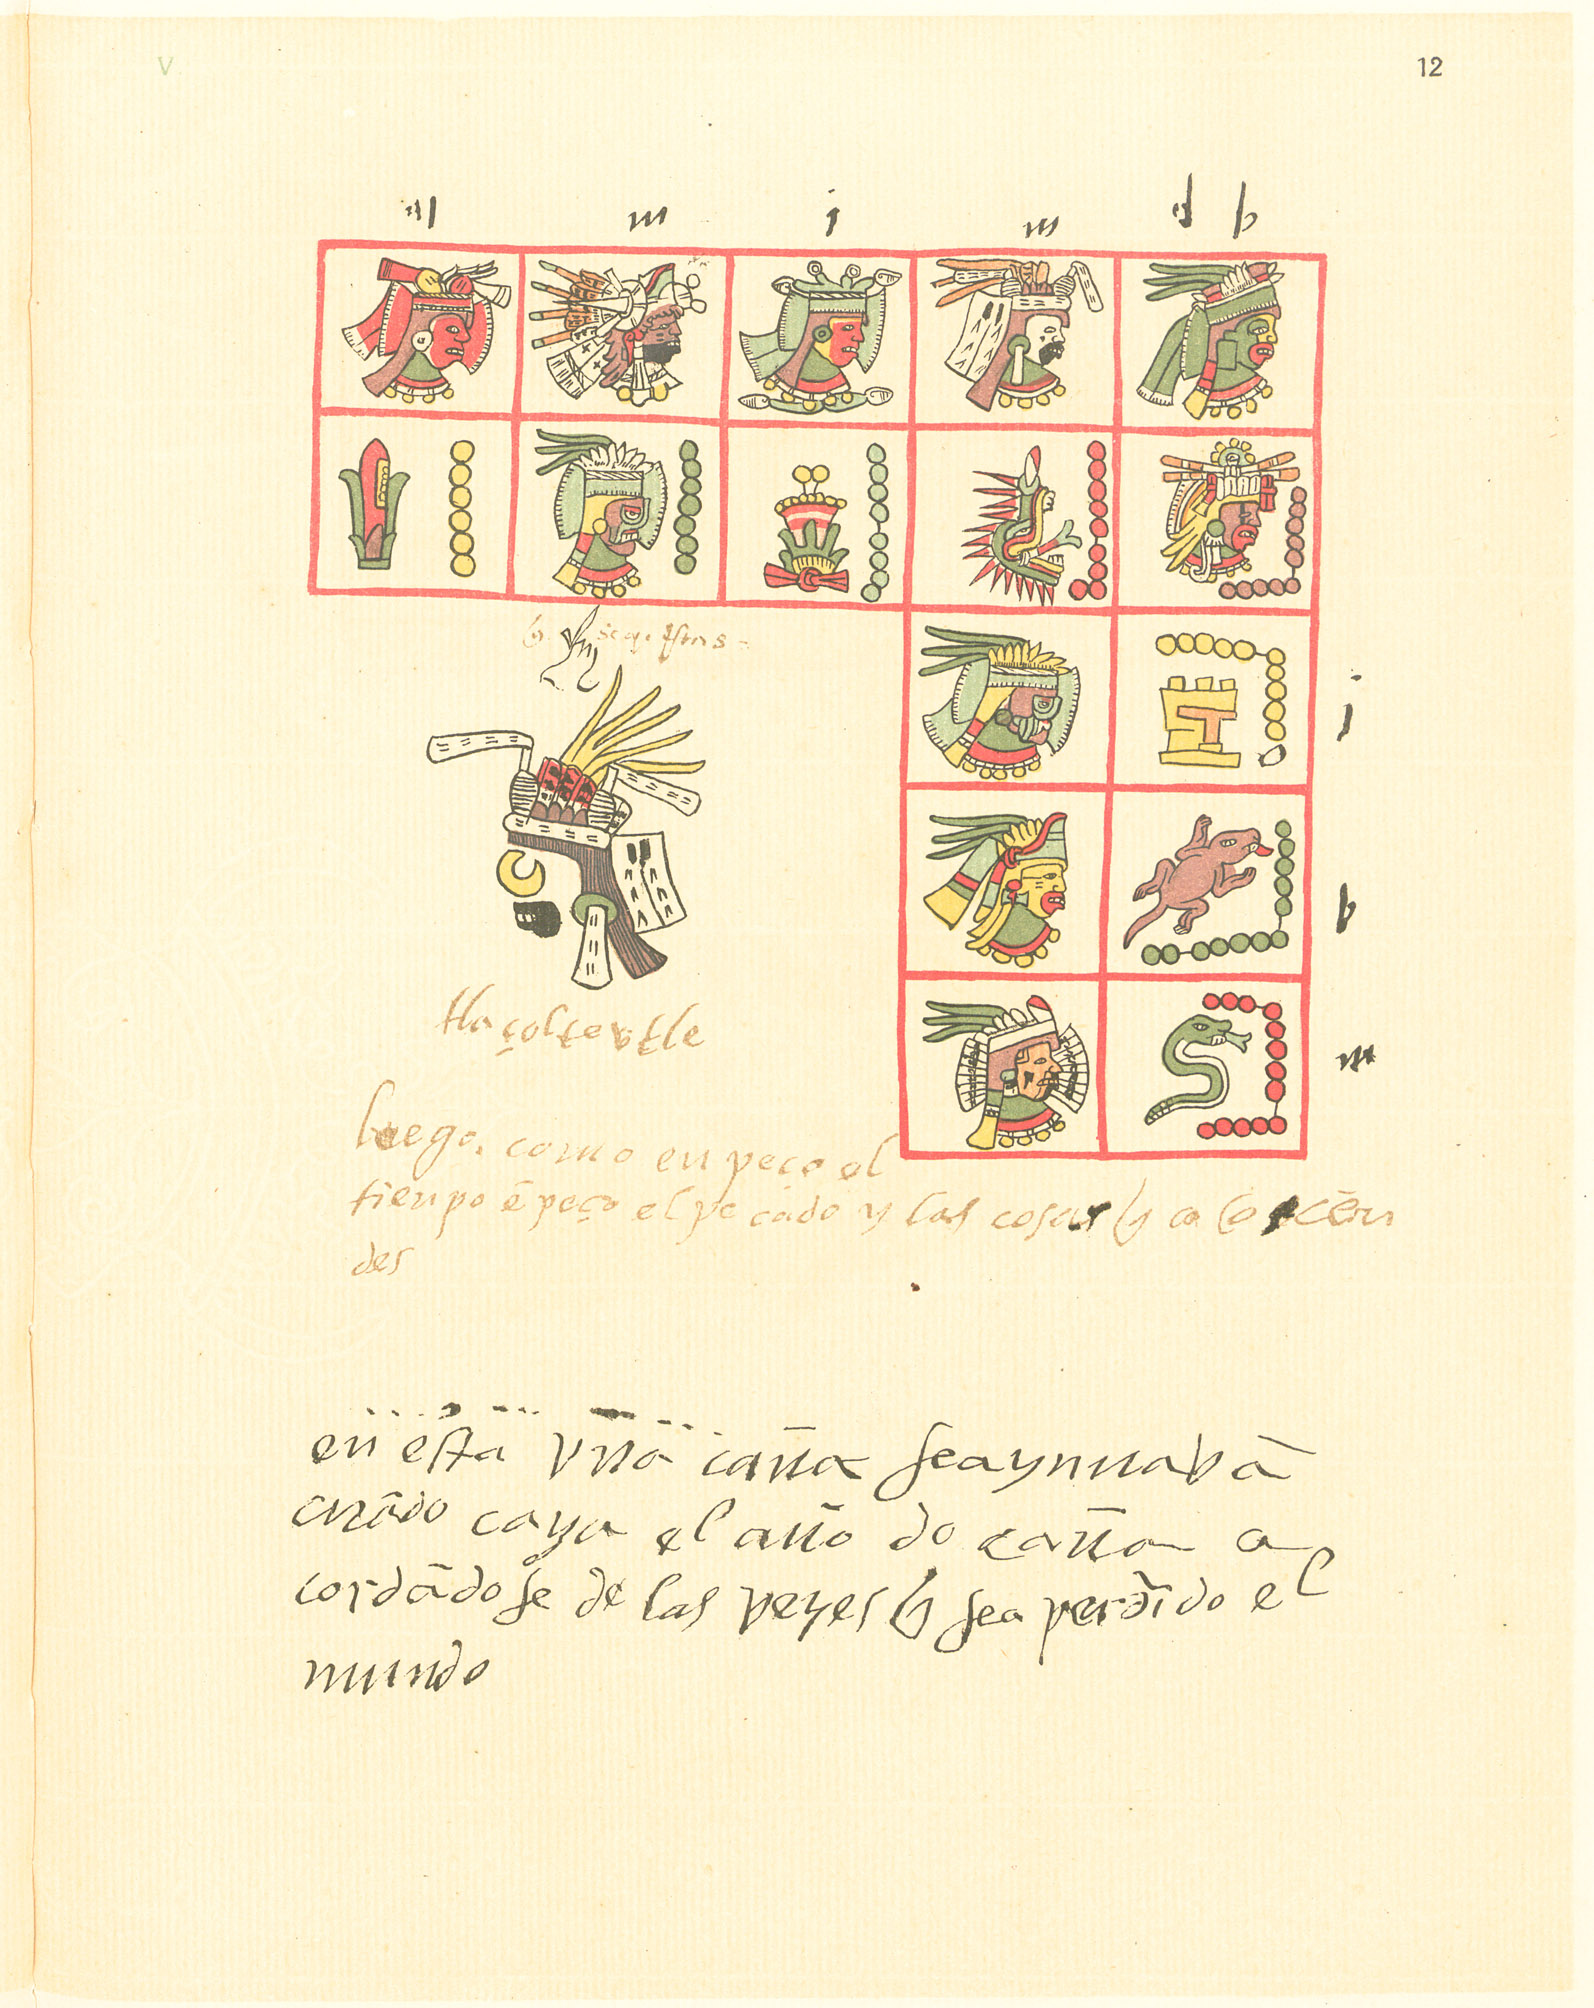 V
12
a m i m d b
tlaçolteotle
j
b
m
luego. como enpeço el
tienpo ēpeço el pecado y las cosas
des
en esta vna caña se aynnabā
cuādo caya el año do caña a
cordādose de las veyes q̄ sea perdido el
mundo